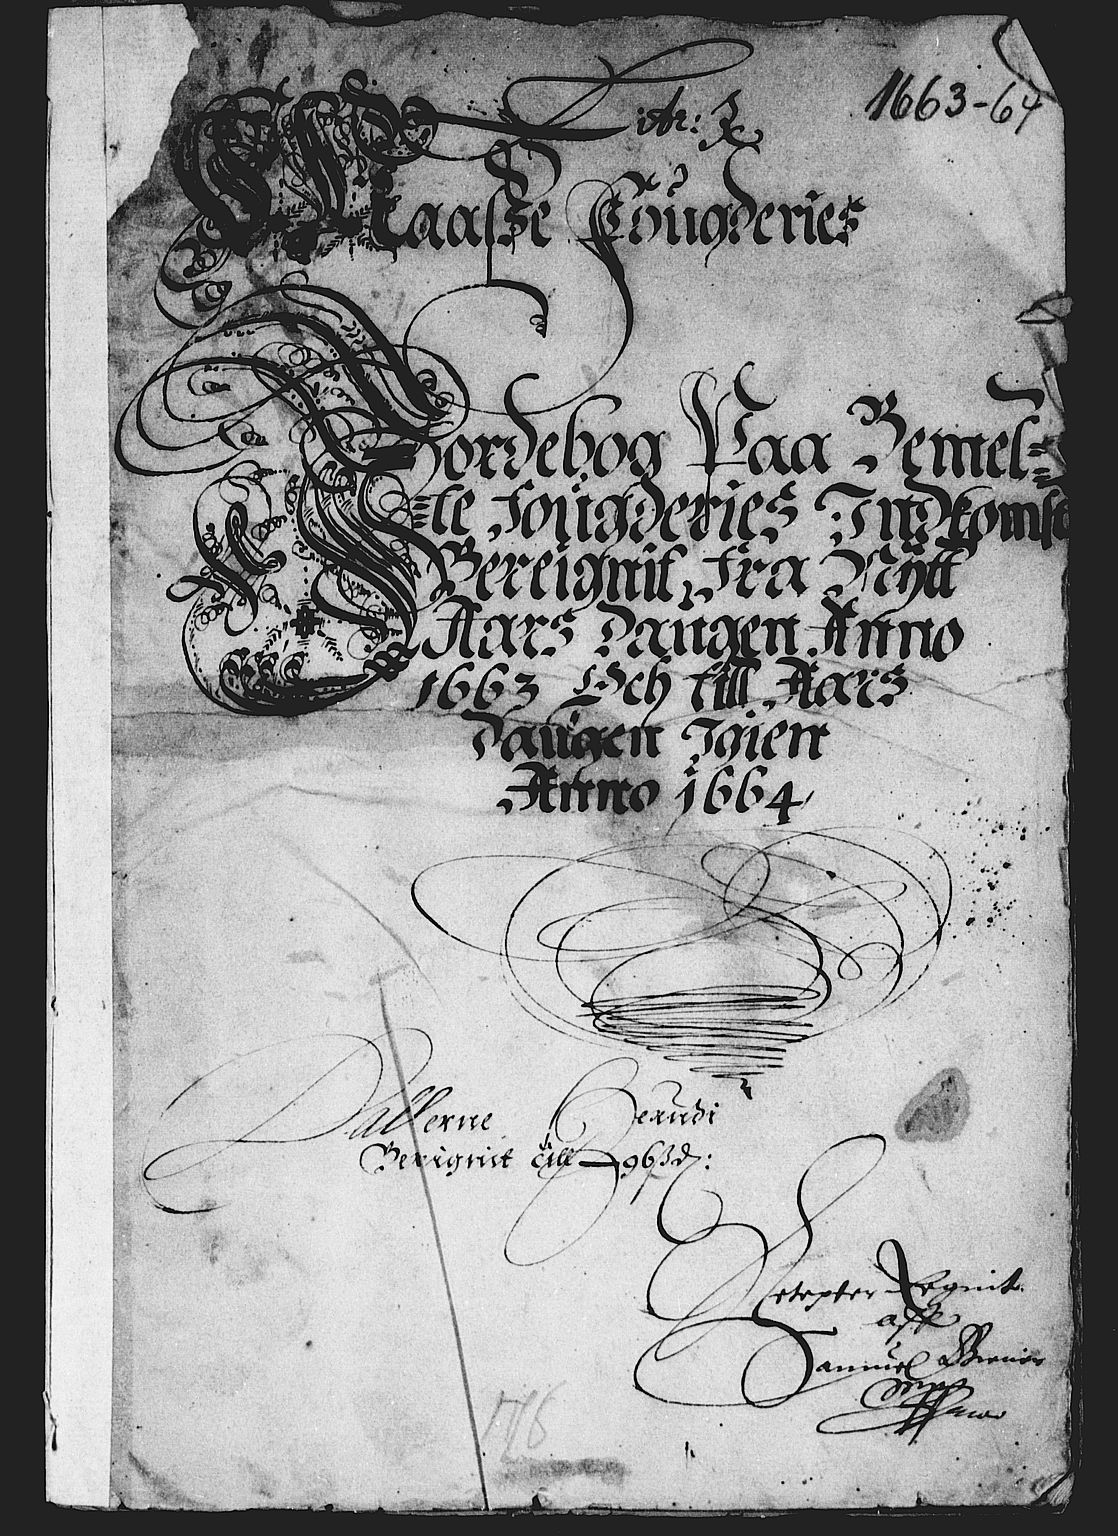 1663-64
Litr: J
Maasse Fougderies
Jordebog Paa Bemel-
te Fougderies Indkomst
Bereignit, fra Nÿtt
Aars Daugen Anno
1663 Och till Aars
Daugen Igien
Anno 1664
Dallerne Herudi
Berignit till 96 ß d:
Regnit
aff
Samuel